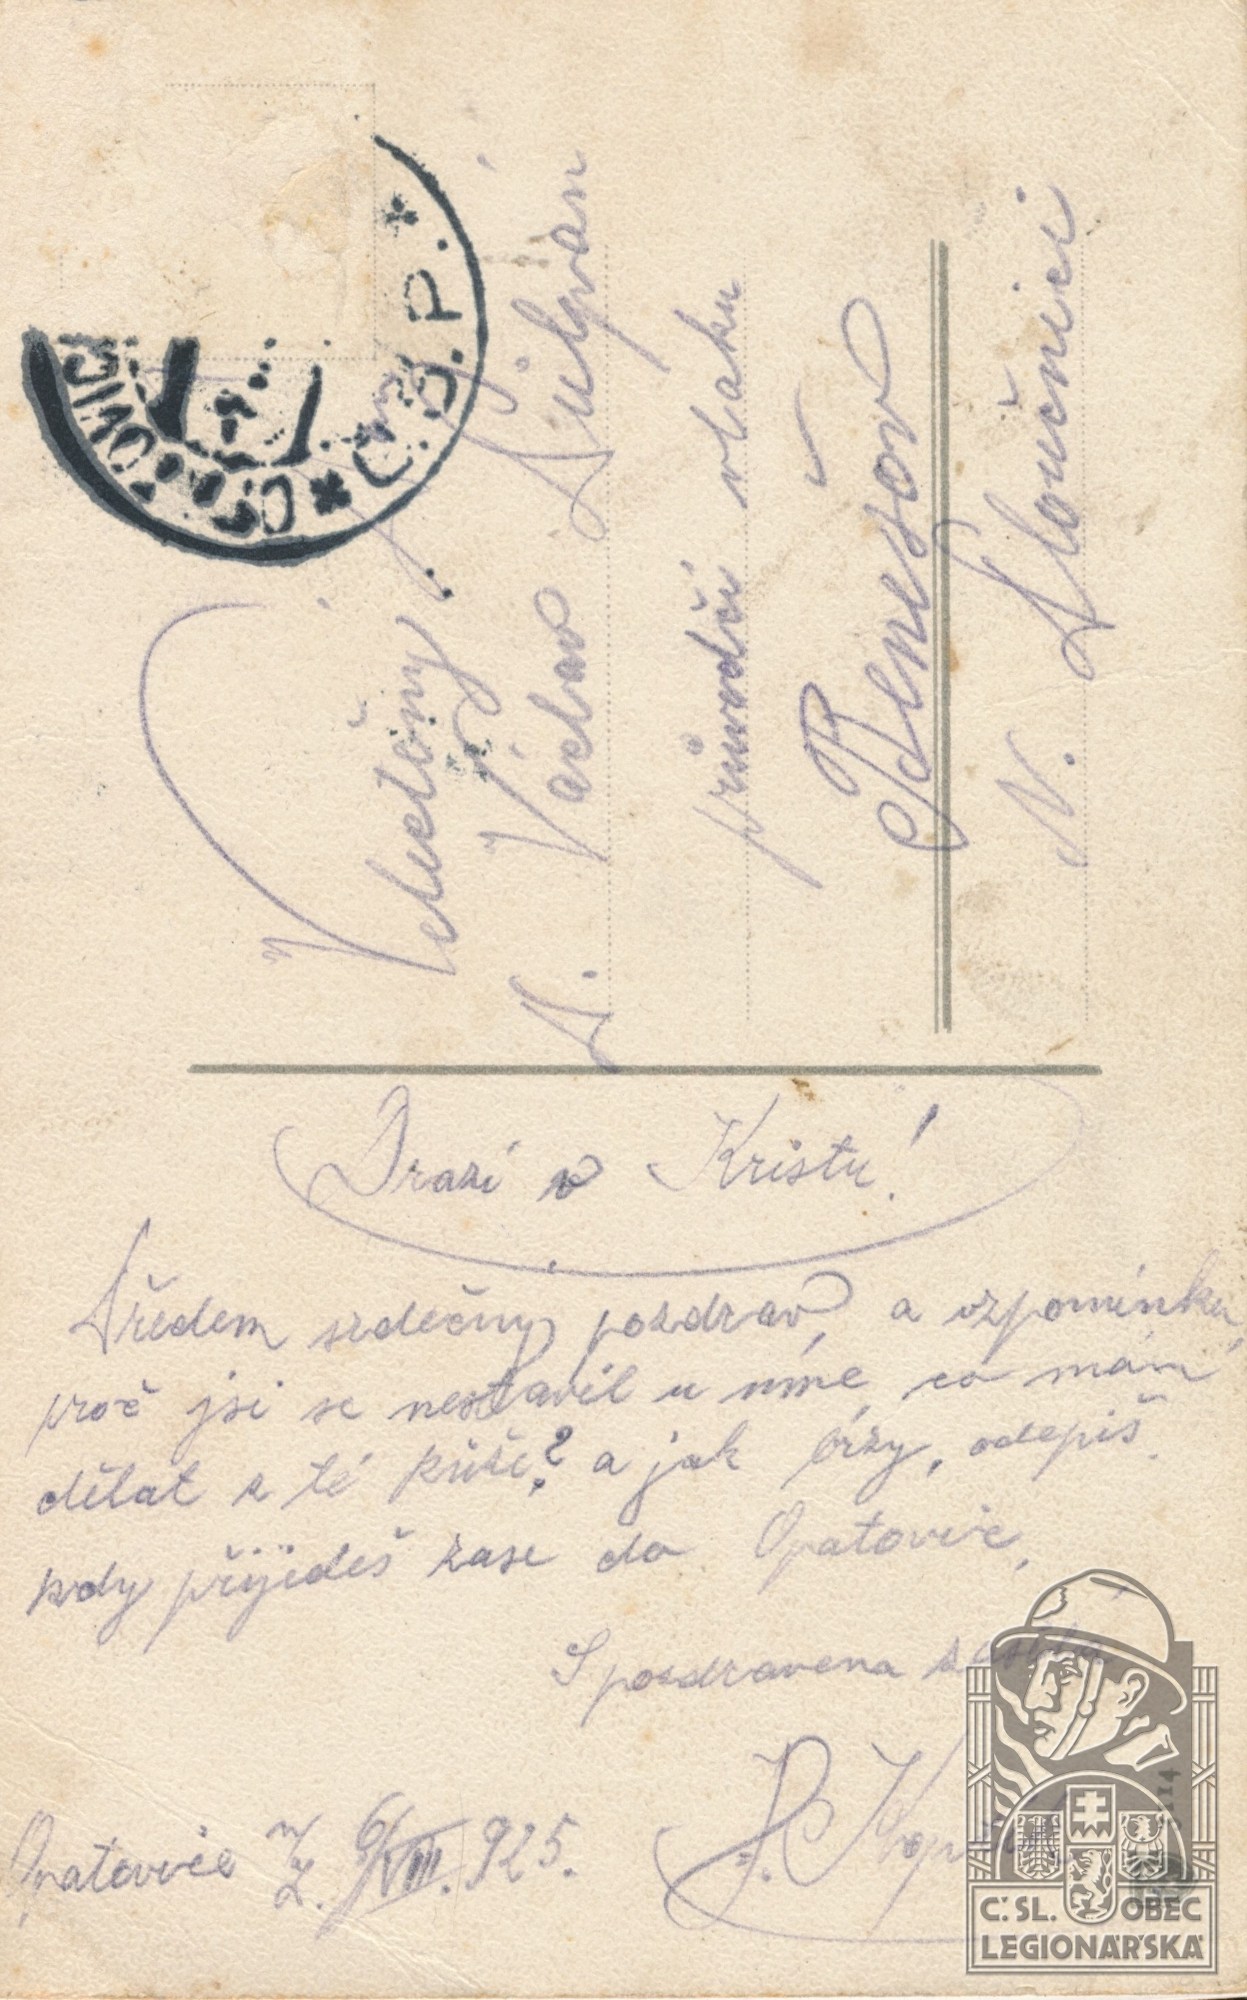 Velectěný
Václav
průvodčí vlaku
Benešov
N. Sloučnici
Drazí v Kristu!
Středem srdečný pozdrav a vzpomínku,
proč jsi se nestavil u mne, co mám
dělat z té kůže? a jak brzy, odepiš.
kdy přijedeš zase do Opatovic,
S pozdravena
Opatovice 6/VIII. 925.
Č. SL. OBEC
LEGIONÁŘSKÁ